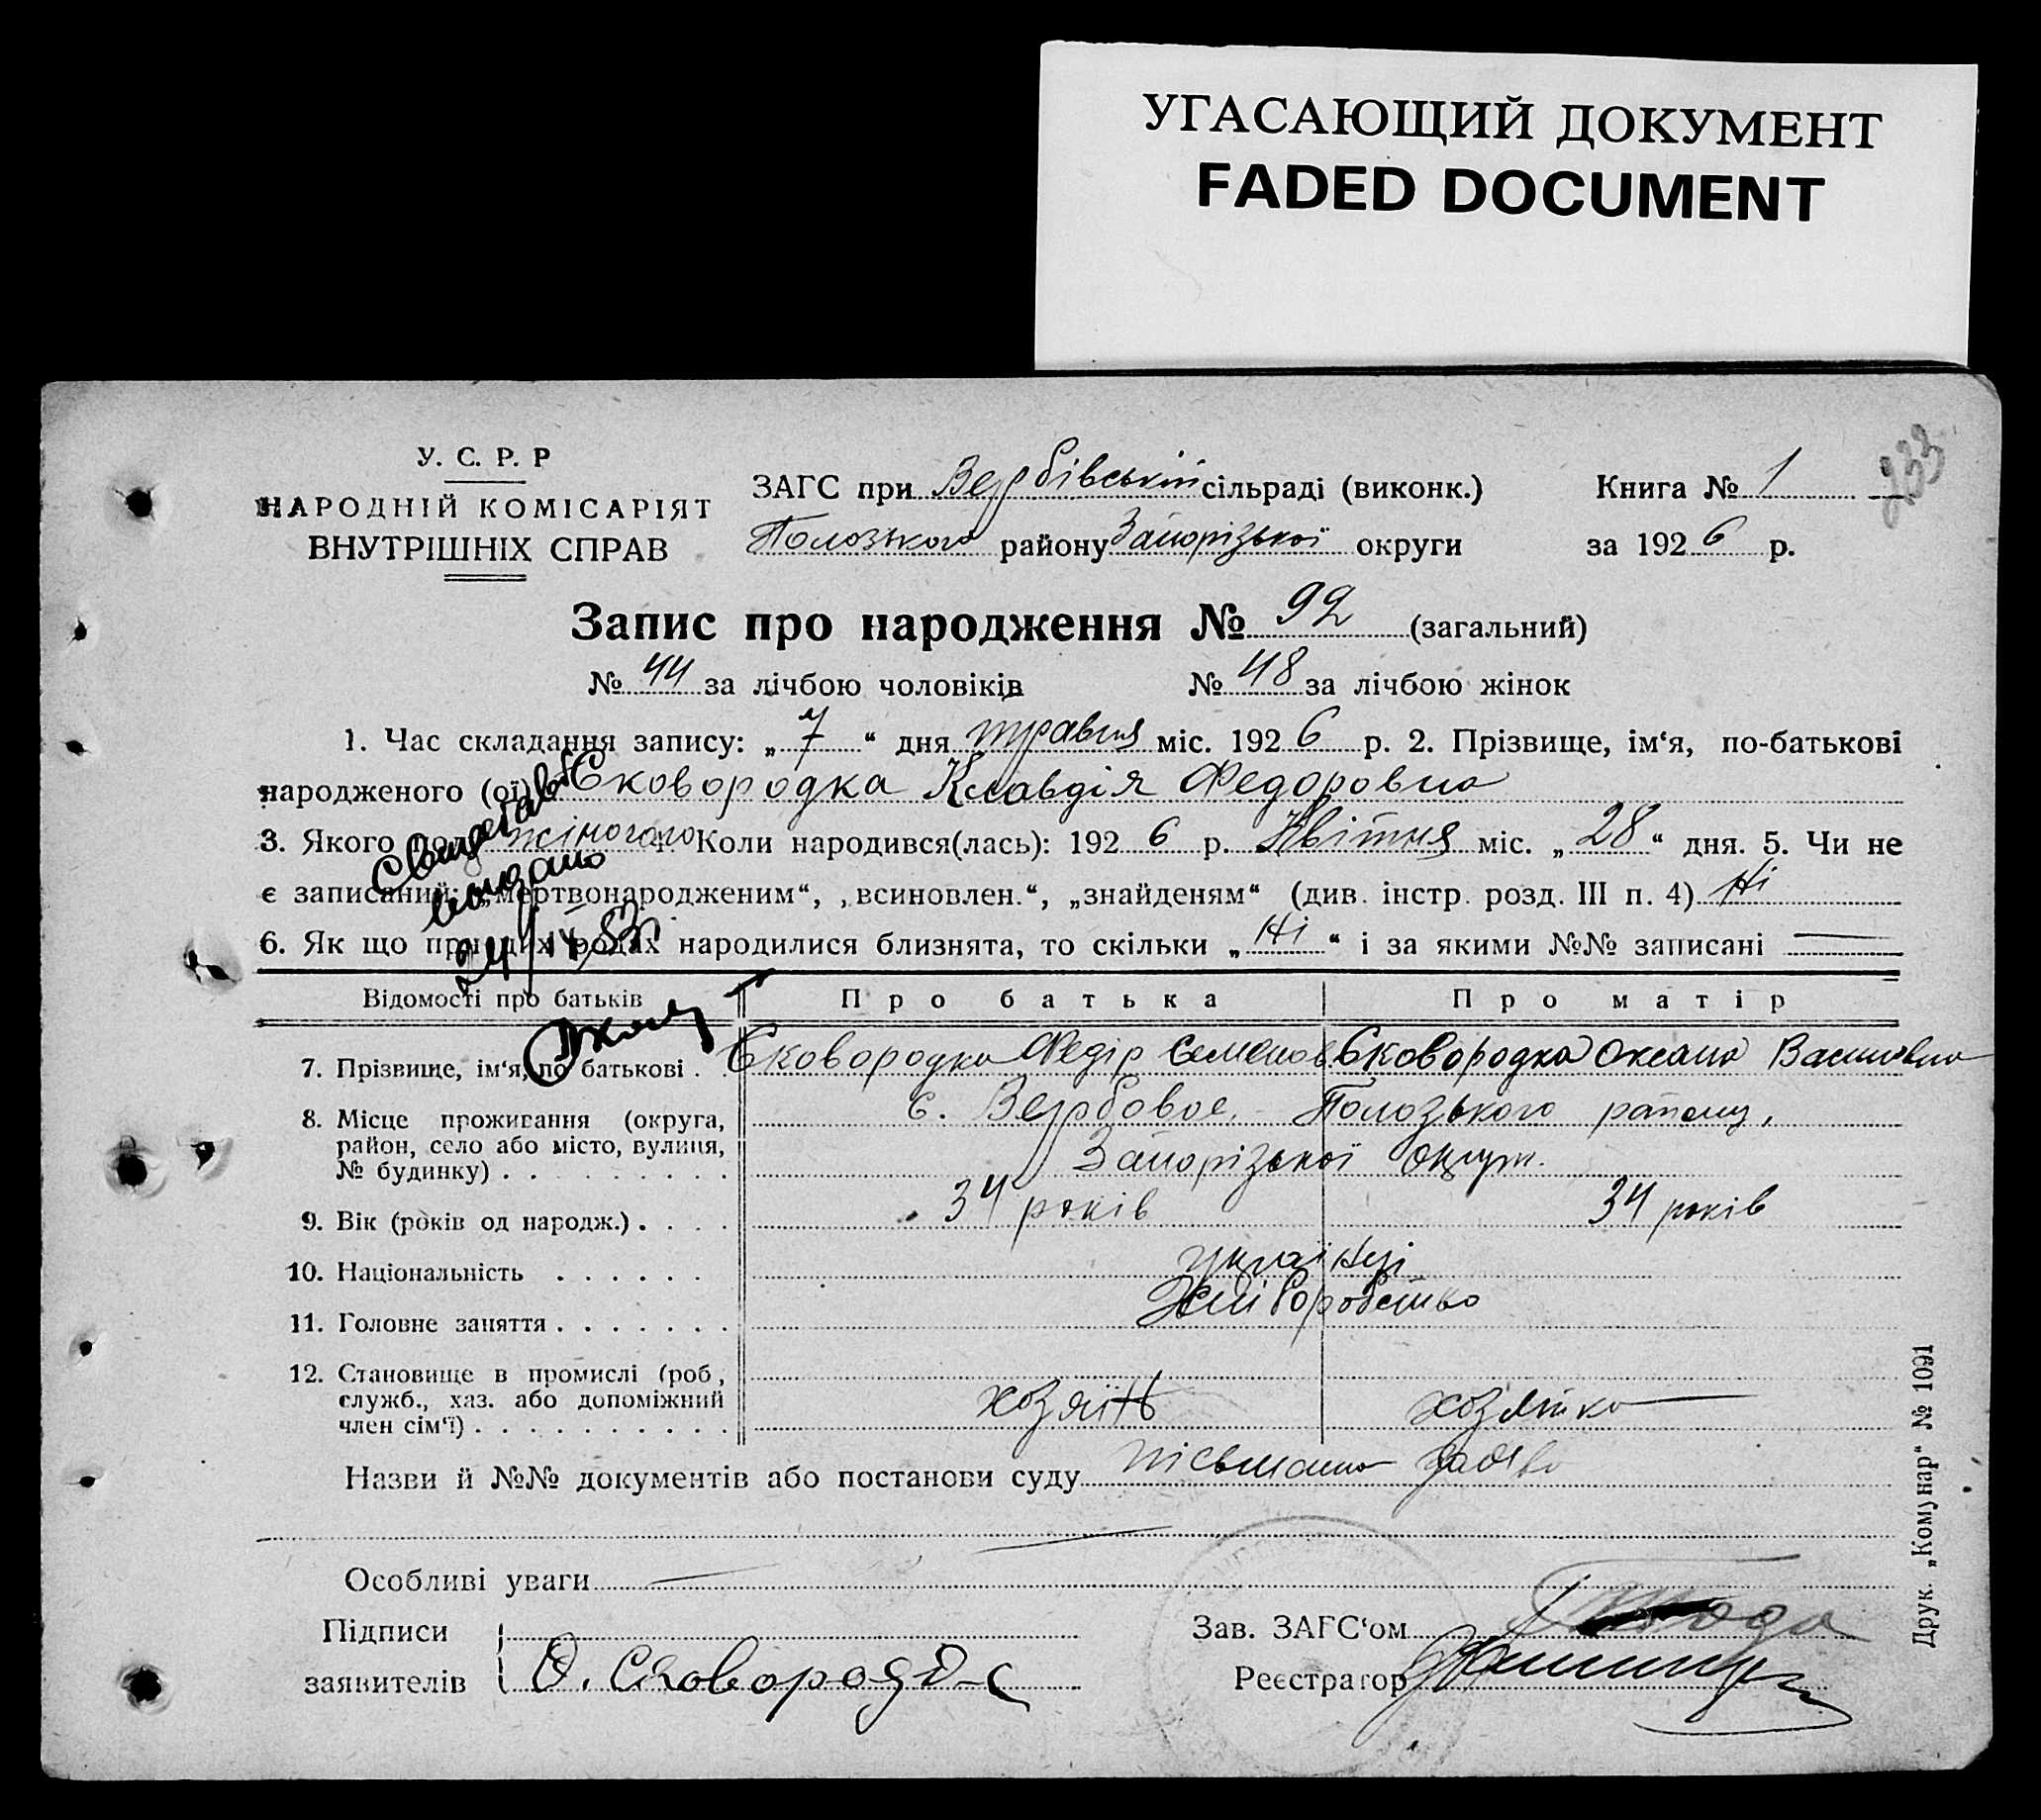 УГАСАЮЩИЙ ДОКУМЕНТ
FADED DOCUMENT
233
У. С. Р. Р
НАРОДНІЙ КОМІСАРІЯТ
ВНУТРІШНІХ СПРАВ
ЗАГС при Вербівській сільраді (виконк.) Книга № 1
Полозького району Запорізької округи за 1926 р.
Запис про народження № 92 (загальний)
№ 44 за лічбою чоловіків № 48 за лічбою жінок
1. Час складання запису: „7“ дня травня міс. 1926 р. 2. Прізвище, ім‘я, по-батькові
народженого (ої) Сковородка Клавдія Федоровна
3. Якого полу жіночого 4. Коли народився(лась): 1926 р. Квітня міс. „28“ дня. 5. Чи не
є записаний: „мертвонародженим“, „всиновлен.“, „знайденям“ (див. інстр. розд. III п. 4) Ні
6. Як що при цих родах народилися близнята, то скільки „Ні“ і за якими №№ записані —
Відомості про батьків Про батька Про матір
7. Прізвище, ім‘я, по батькові . Сковородка Федір Семенов. Сковородка Оксана Василівна
8. Місце проживання (округа, район, село або місто, вулиця, № будинку) . . . . . . . . . с. Вербовое, Полозького району,
Запорізької округи.
9. Вік (років од народж.) . . . . 34 років 34 років
10. Національність . . . . . . українці
11. Головне заняття . . . . . . . Хліборобство
12. Становище в промислі (роб., служб., хаз. або допоміжний член сім‘ї) . . . . . . . . . . хозяїн хозяйка
Назви й №№ документів або постанови суду пісьмана заява
Особливі уваги —
Підписи
заявителів О. Сковородка
Зав. ЗАГС‘ом
Реєстратор
Друк. „Комунар“ № 1091